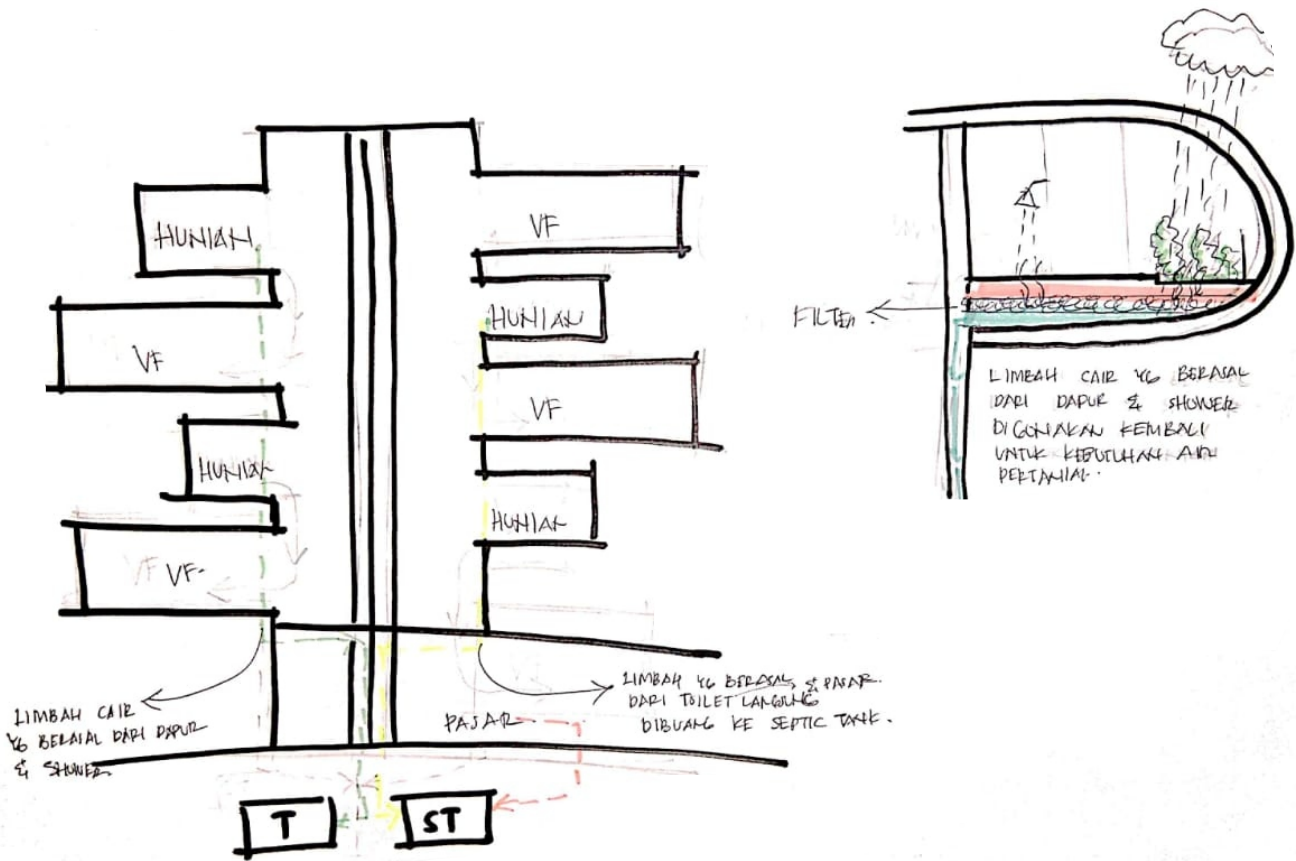 HUNIAN
VF
HUNIAN
VF.
LIMBAH CAIR
YG BERASAL DARI DAPUR
& SHOWER
VF
HUNIAN
VF
HUNIAN
LIMBAH YG BERASAL & PASAR.
DARI TOILET LANGSUNG
DIBUANG KE SEPTIC TANK.
PASAR
T
ST
FILTER.
LIMBAH CAIR YG BERASAL
DARI DAPUR & SHOWER
DIGUNAKAN KEMBALI
UNTUK KEBUTUHAN AIR
PERTANIAN.